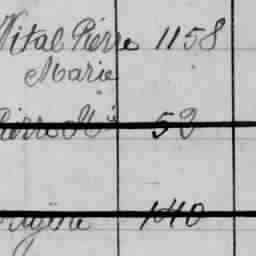 Vital Pierre 1158
Marie
Pierre Me 52
Eugène 140